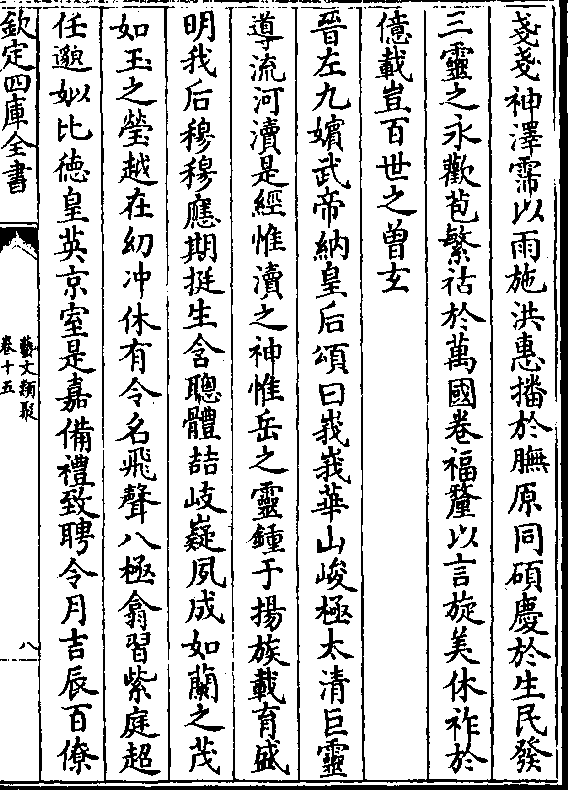 戔戔神澤霈以雨施洪惠播於膴原同碩慶於生民發
三靈之永歡苞繁祜於萬國卷福釐以言旋美休祚於
億載豈百世之曾玄
晉左九嬪武帝納皇后頌曰峩峩華山峻極太清巨靈
導流河瀆是經惟瀆之神惟岳之靈鍾于揚族載育盛
明我后穆穆應期挺生含聰體喆岐嶷夙成如蘭之茂
如玉之瑩越在㓜冲休有令名飛聲八極翕習紫庭超
任邈姒比徳皇英京室是嘉備禮致聘令月吉辰百僚
欽定四庫全書
藝文類聚
卷十五
八